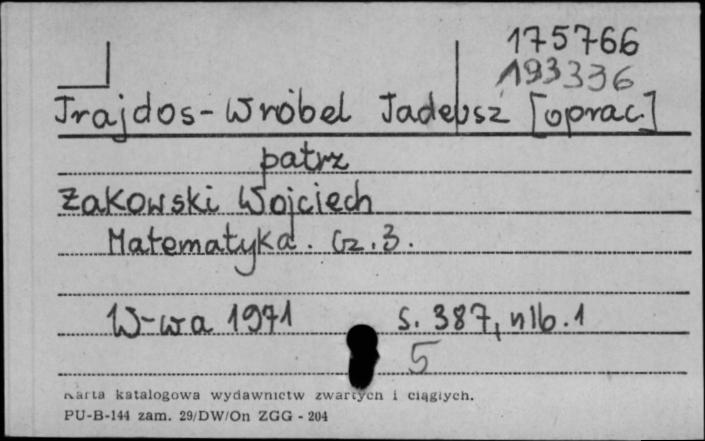 175766
193336
Trajdos-Wróbel Tadeusz [oprac.]
patrz
Żakowski Wojciech
Matematyka. Cz. 3.
W-wa 1971 s. 387, nlb. 1
5
Karta katalogowa wydawnictw zwartych i ciągłych.
PU-B-144 zam. 29/DW/On ZGG - 204